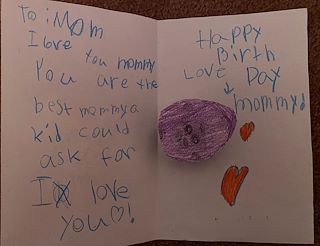 To: Mom
I love you mommy
You are the
best mommy a
kid could
ask for
I love
you♡!
Happy
Birth
Day
Love
↓ mommy!